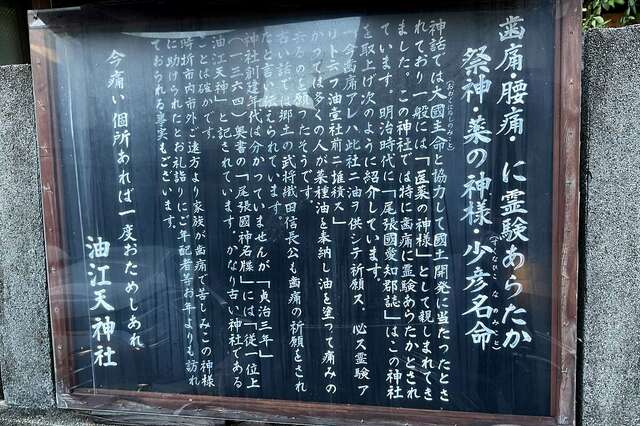 歯痛・腰痛・に霊験あらたか
祭神・薬の神様・少彦名命
(すくなひこなのみこと)
神話では大國主命と協力して國土開発に当たったとさ
(おおくにぬしのみこと)
れており一般には「医薬の神様」として親しまれてき
ました。この神社では特に歯痛に霊験あらたかとされ
ています。明治時代に「尾張國愛知郡誌」はこの神社
を取上げ次のように紹介しています。
「今歯痛アレハ此社ニ油ヲ供シテ祈願ス、心ス霊験ア
リトニフ油壺社前ニ堆積ス」
かっては多くの人が菜種油を奉納し油を塗って痛みの
去るのを願ったそうです。
古い話では郷土の武将織田信長公も歯痛の祈願をされ
たと言い伝えられています。
神社創建年代は分かっていませんが「貞治三年」
(一三六四)奥書の「尾張國神名牒」には「従一位上
油江天神」と記されています。かなり古い神社である
ことは確かです。
時折市内市外ご遠方より家族が歯痛で苦しみこの神様
に助けられたとお礼詣りにご年配者等お年よりも訪れ
ておられる事実もございます。
今痛い個所あれば一度おためしあれ
油江天神社